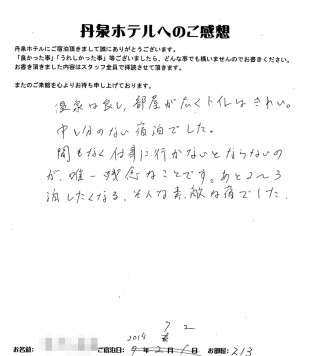 丹泉ホテルへのご感想
丹泉ホテルにご宿泊頂きまして誠にありがとうございます。
「良かった事」「うれしかった事」等ございましたら、どんな事でも構いませんのでお書きください。
お書き頂きました内容はスタッフ全員で拝読させて頂きます。
またのご来館を心よりお待ち申し上げております。
温泉は良し、部屋が広くトイレはきれい。
申し分のない宿泊でした。
間もなく仕事に行かないとならないの
が、唯一残念なことです。あと2～3
泊したくなる、そんな素敵な宿でした。
2019 7 2
お名前: ご宿泊日: 年2月1日 お部屋: 213